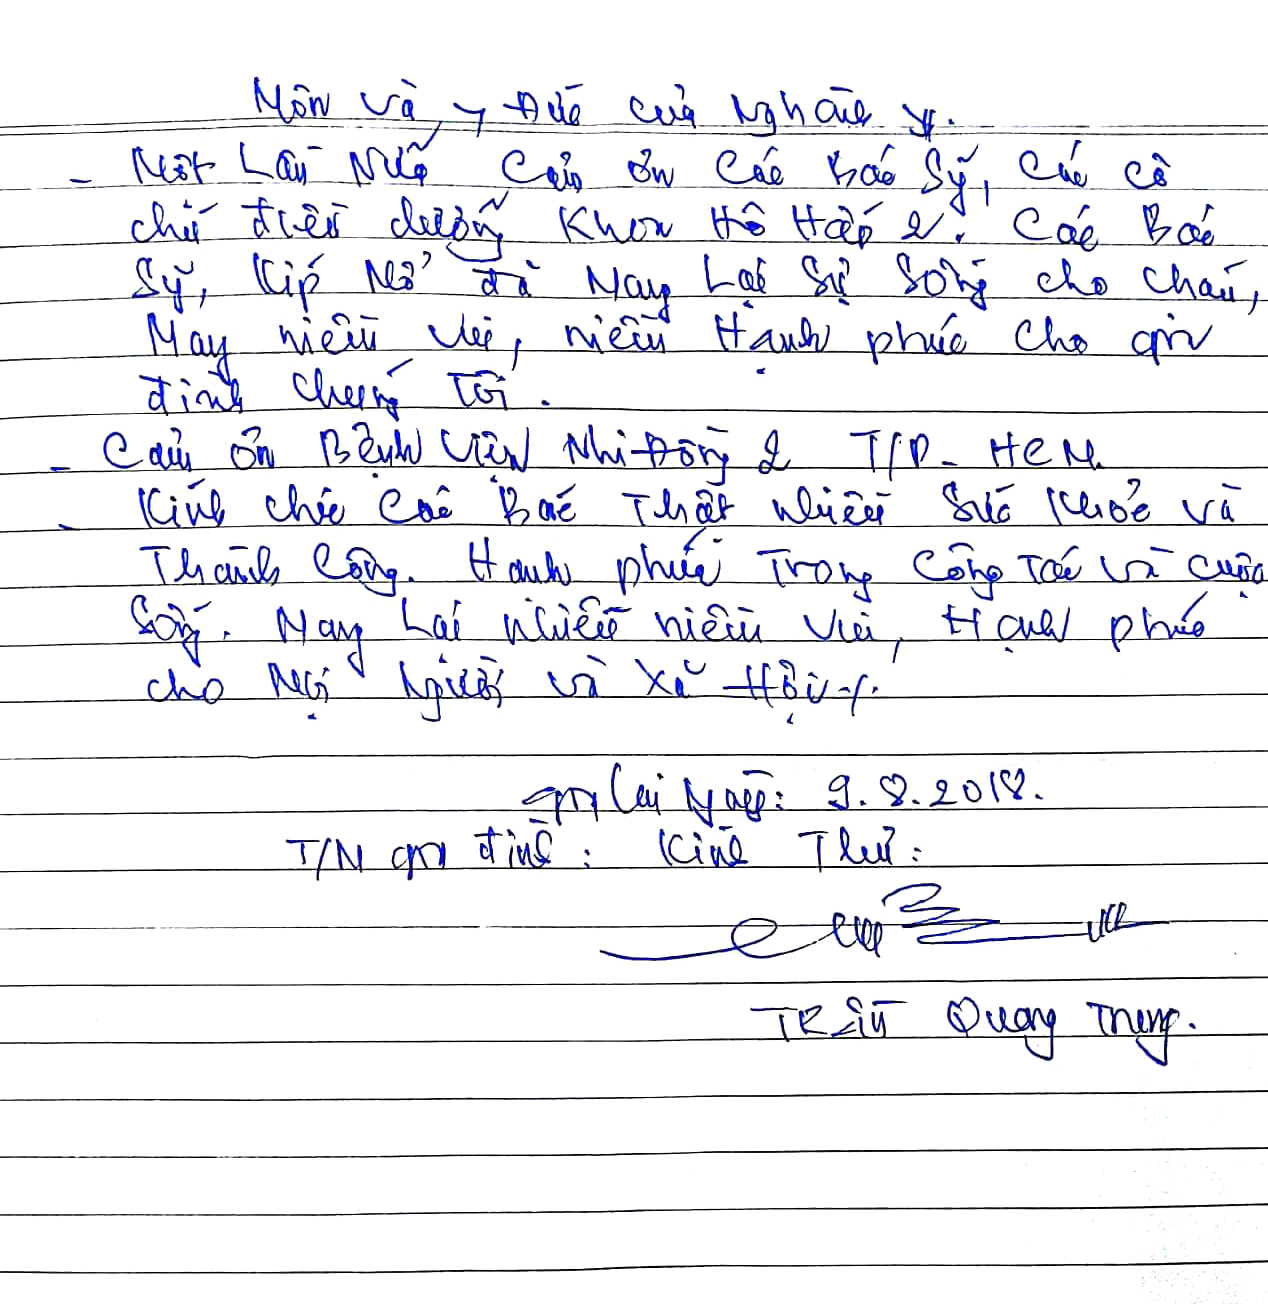 Môn và y Đức của Nghành y.
- Một Lần Nữa Cảm ơn Các Bác Sỹ, Các cô
chú điều dưỡng Khoa Hô Hấp 2. Các Bác
Sỹ, Kíp Mổ đã Mang Lại Sự Sống cho cháu,
Mang niềm vui, niềm Hạnh phúc cho gia
đình chúng Tôi.
- Cảm ơn Bệnh Viện Nhi Đồng 2 T/P - HCM.
- Kính chúc Các Bác Thật nhiều Sức Khoẻ và
Thành Công. Hạnh phúc Trong Công Tác và cuộc
Sống. Mang Lại nhiều niềm vui, Hạnh phúc
cho Mọi Người và Xã Hội./.
Gia Lai Ngày: 9.8.2018.
T/M gia đình: Kính Thư:
TRẦN Quang Trung.